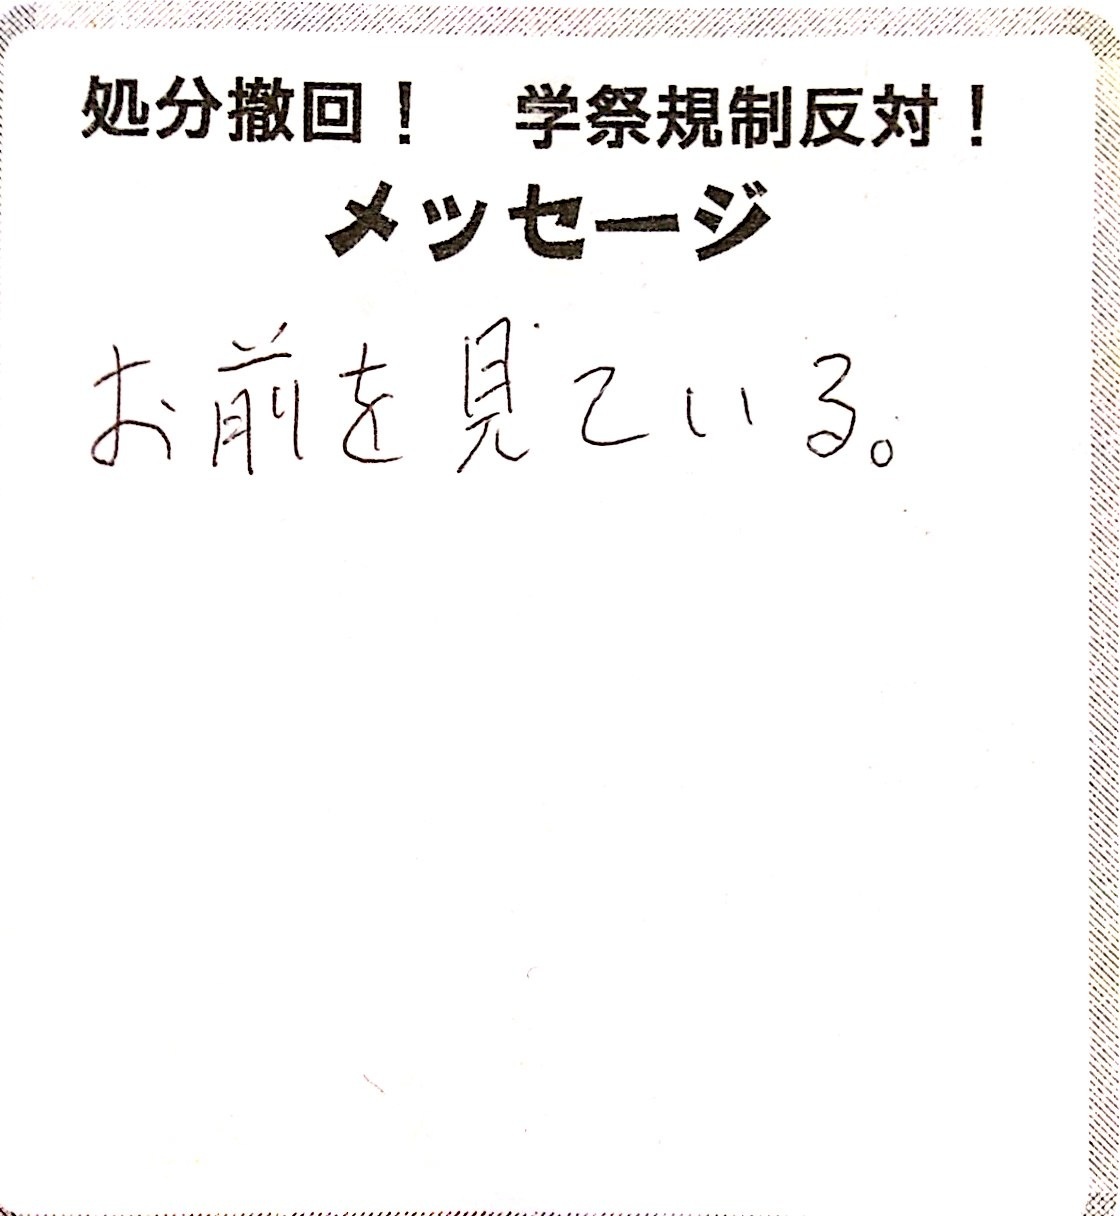 処分撤回！　学祭規制反対！
メッセージ
お前を見ている。